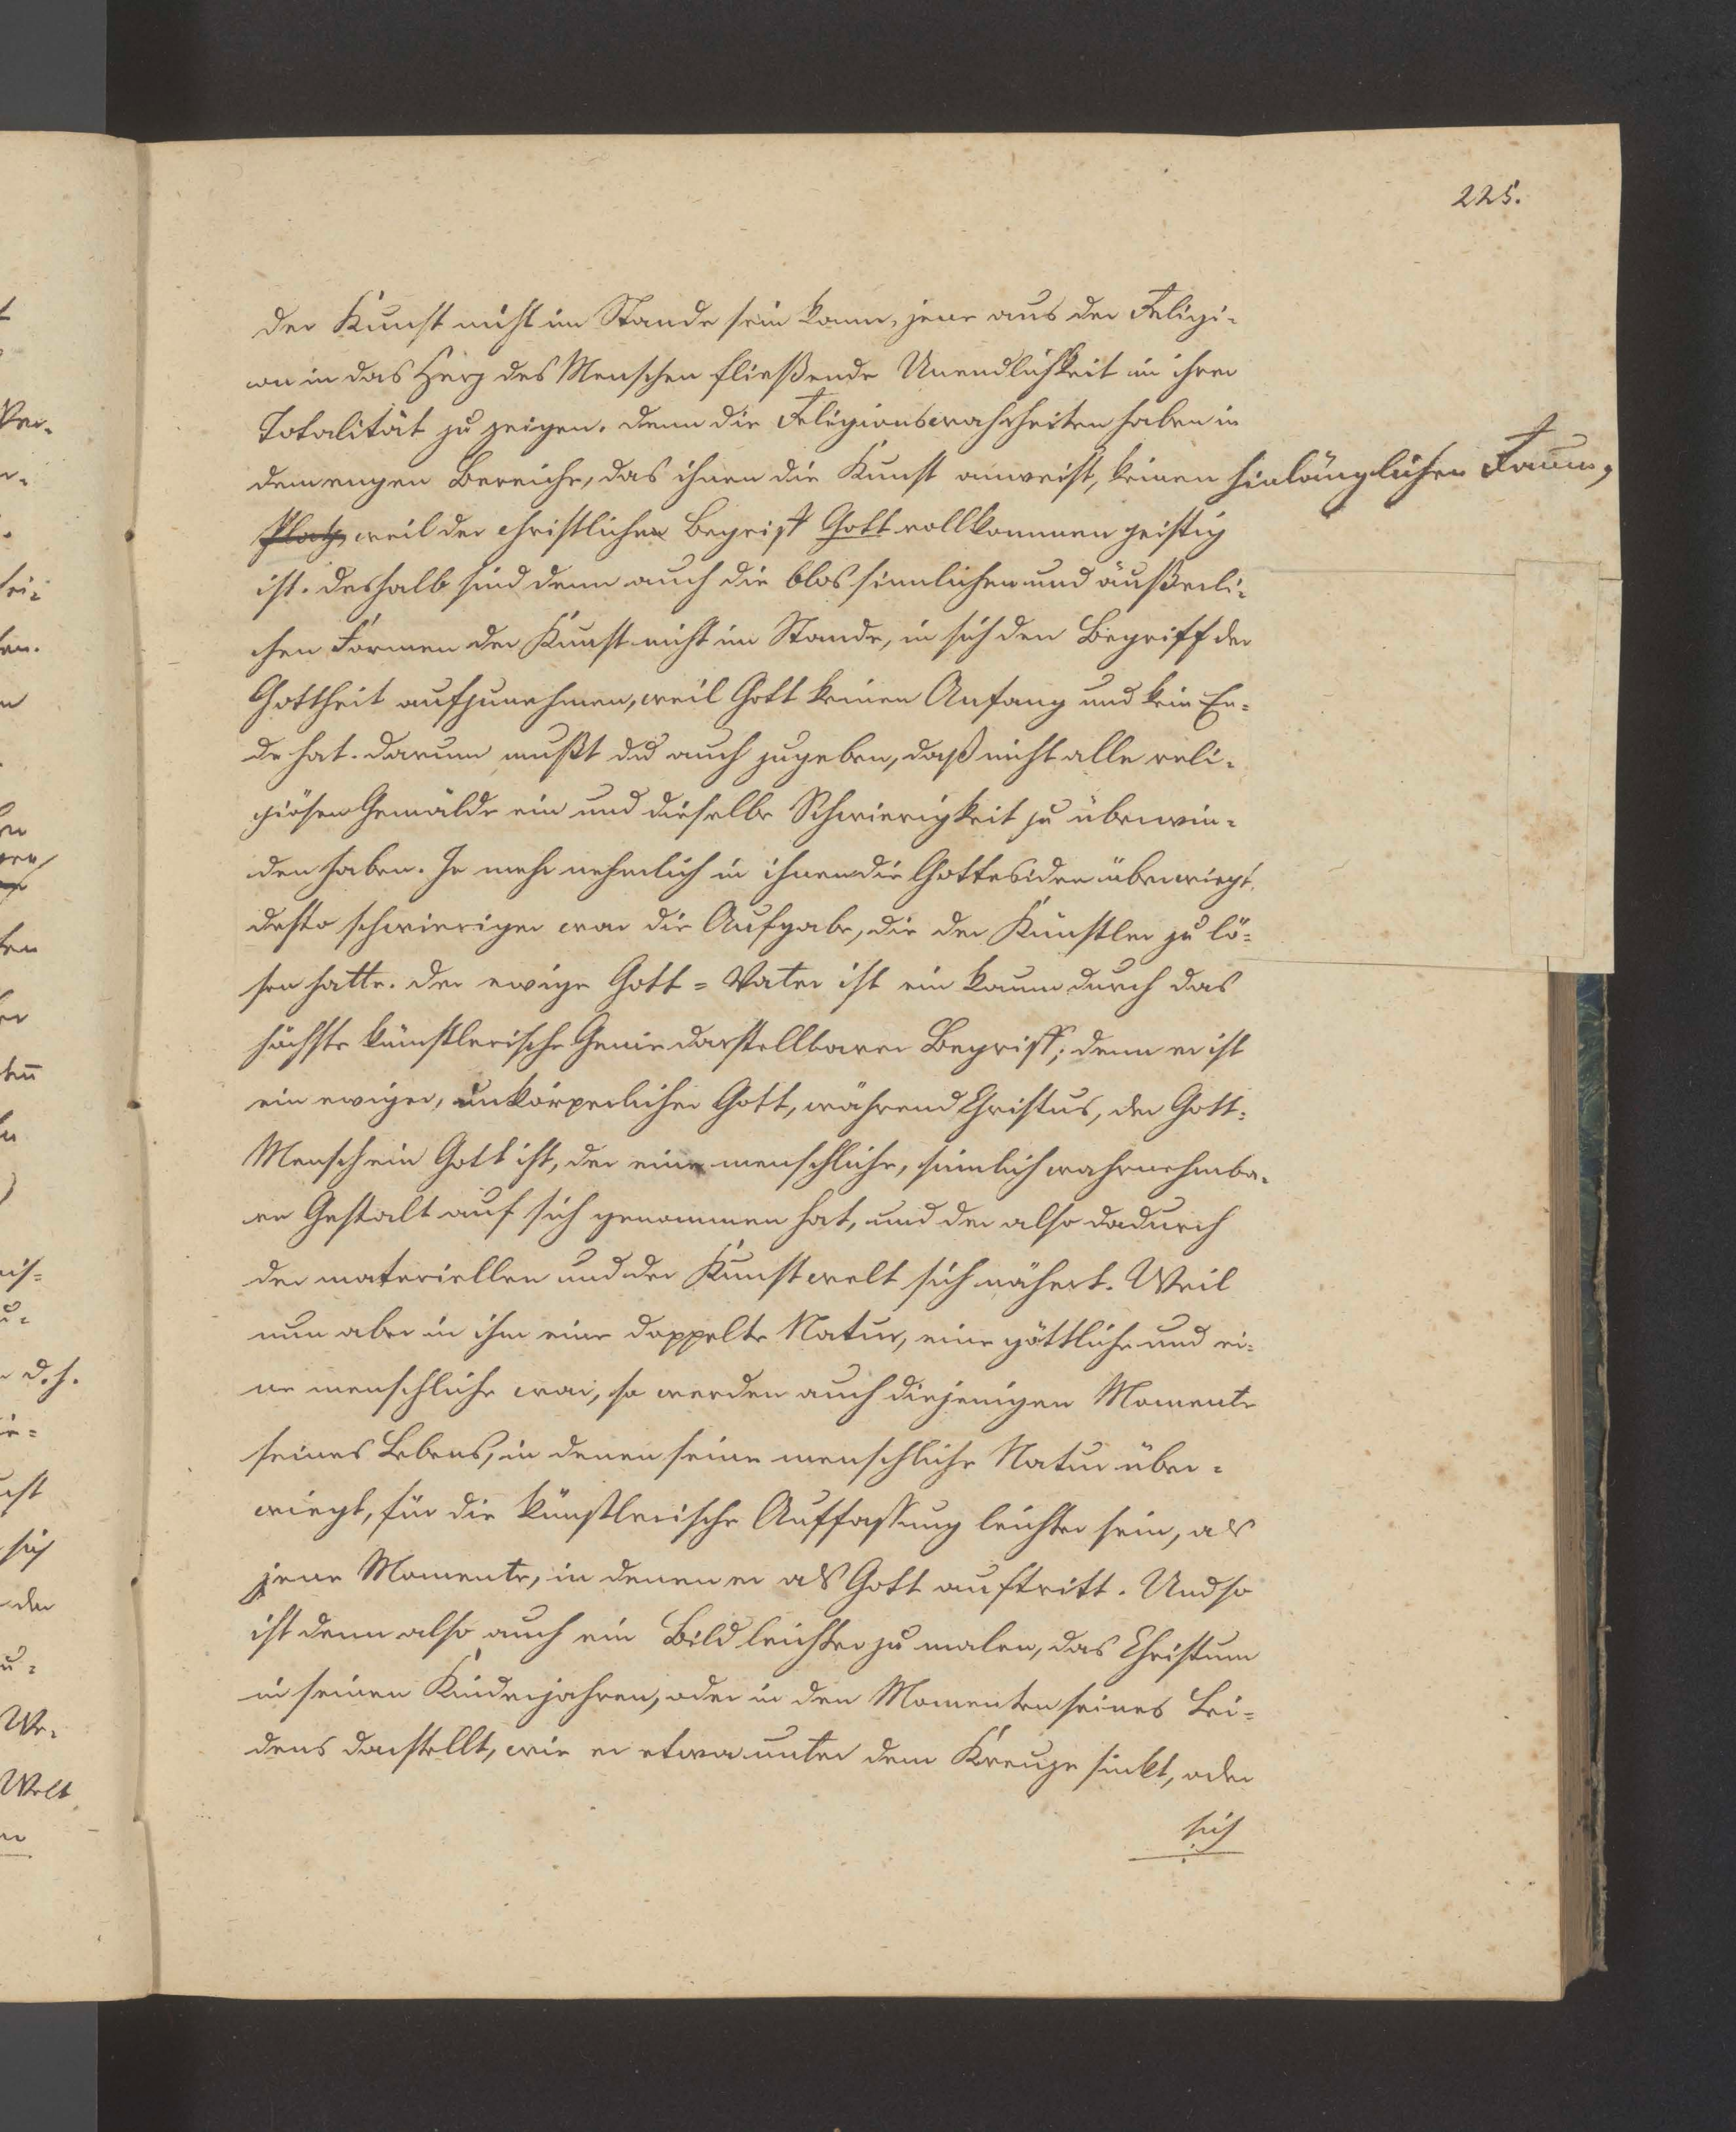 225.
der Kunst nicht im Stande sein kann, jene aus der Religi-
on in das Herz des Menschen fließende Unendlichkeit in ihrer
Totalität zu zeigen. Denn die Religionswahrheiten haben in
dem engen Bereiche, das ihnen die Kunst anweist, keinen hinlänglichen Raum,
Platz, weil der christliche Begriff Gott vollkommen geistig
ist. Deshalb sind denn auch die blos sinnlichen und äußerli-
chen Formen der Kunst nicht im Stande, in sich den Begriff der
Gottheit aufzunehmen, weil Gott keinen Anfang und kein En-
de hat. Darum mußt du auch zugeben, daß nicht alle reli-
giösen Gemälde ein und dieselbe Schwierigkeit zu überwin-
den haben. Je mehr nehmlich in ihnen die Gottesidee überwiegt,
desto schwieriger war die Aufgabe, die der Künstler zu lö-
sen hatte. Der ewige Gott-Vater ist ein kaum durch das
höchste künstlerische Genie darstellbarer Begriff; denn er ist
ein ewiger, unkörperlicher Gott, während Christus, der Gott-
Mensch ein Gott ist, der eine menschliche, sinnlich wahrnehmba-
re Gestalt auf sich genommen hat, und der also dadurch
der materiellen und der Kunstwelt sich nähert. Weil
nun aber in ihm eine doppelte Natur, eine göttliche und ei-
ne menschliche war, so werden auch diejenigen Momente
seines Lebens, in denen seine menschliche Natur über-
wiegt, für die künstlerische Auffassung leichter sein, als
jene Momente, in denen er als Gott auftritt. Und so
ist denn also auch ein Bild leichter zu malen, das Christum
in seinen Kinderjahren, oder in den Momenten seines Lei-
dens darstellt, wie er etwa unter dem Kreuze sinkt, oder
sich